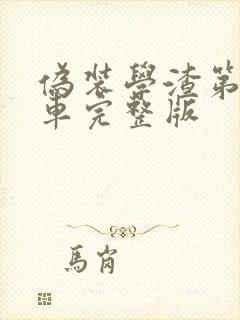 偽裝學渣第
車完整版
馬肖